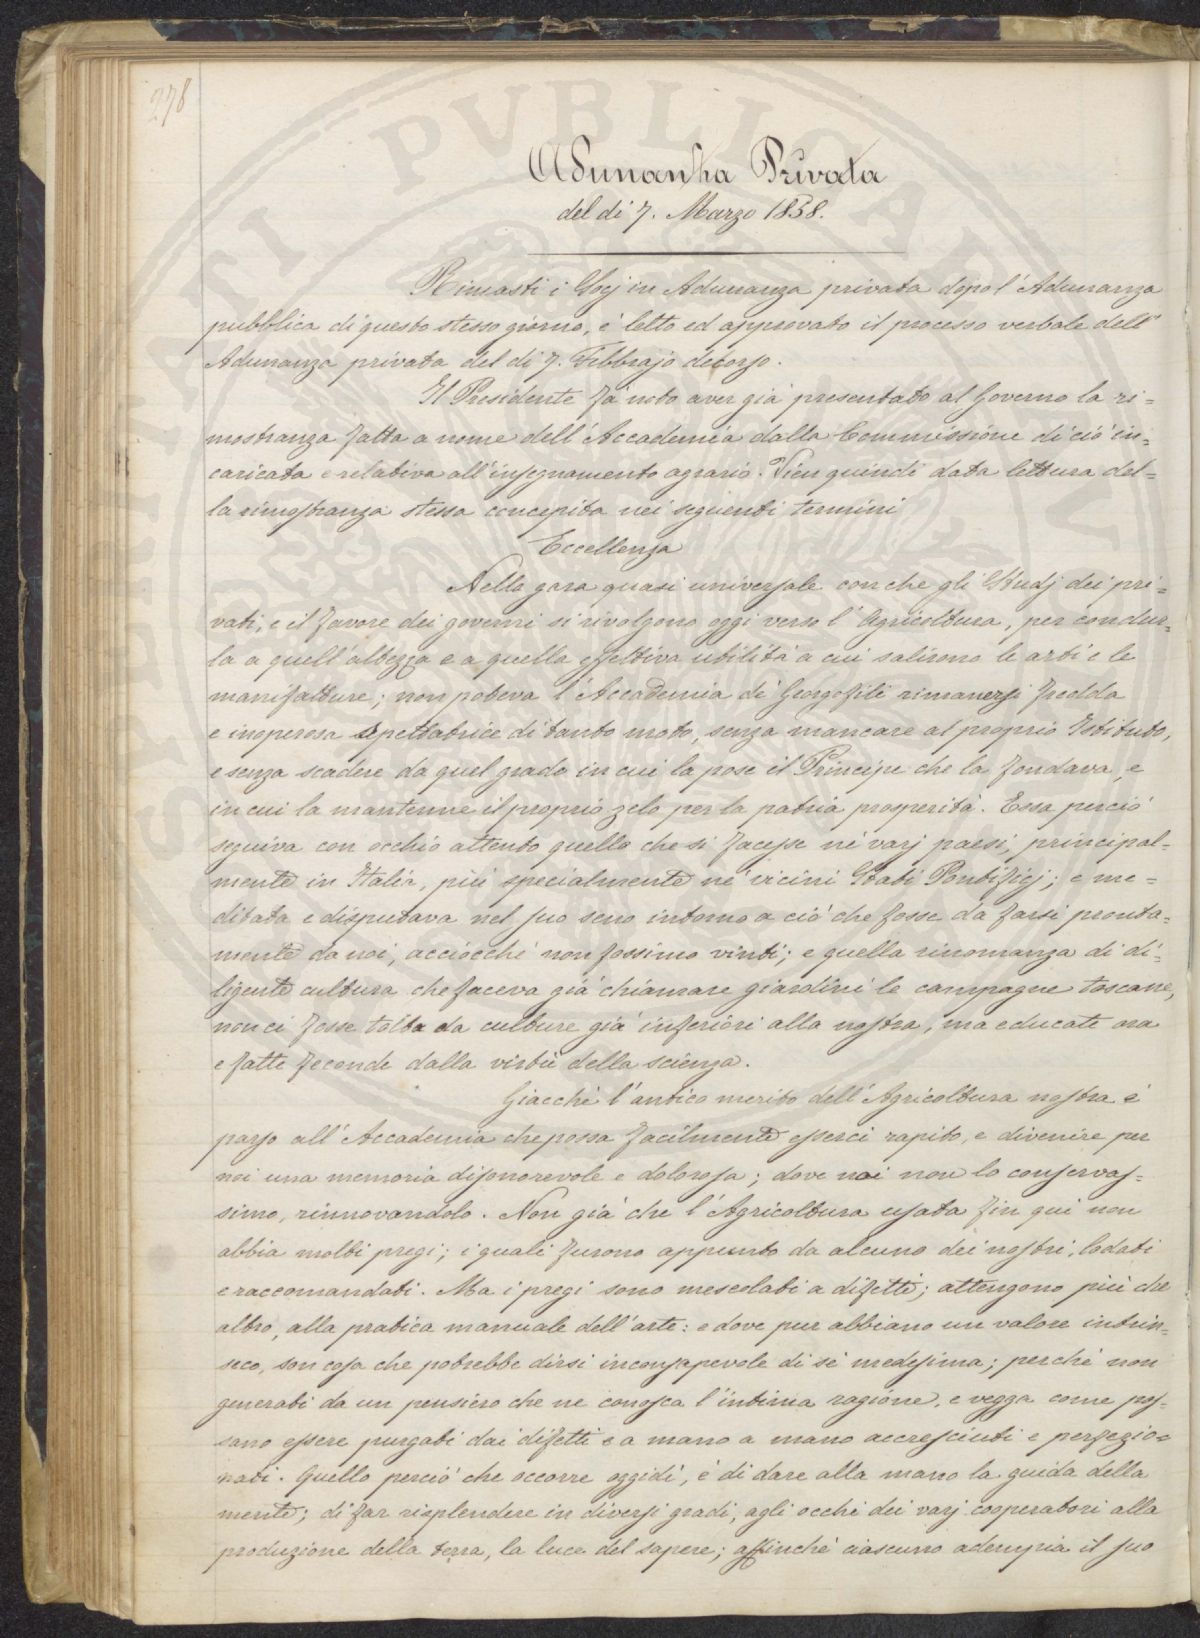 278
Adunanza Privata
del dì 7. Marzo 1858.
Rimasti i Socj in Adunanza privata dopo l'Adunanza
pubblica di questo stesso giorno, è letto ed approvato il processo verbale dell'
Adunanza privata del dì 7. Febbrajo decorso.
Il Presidente fà noto aver già presentato al Governo la ri=
mostranza fatta a nome dell'Accademia dalla Commissione di ciò in=
caricata e relativa all'insegnamento agrario. Vien quindi data lettura del=
la rimostranza stessa concepita nei seguenti termini
Eccellenza
Nella gara quasi universale con che gli Studj dei pri=
vati, e il favore dei governi si rivolgono oggi verso l'Agricoltura, per condur=
la a quell'altezza e a quella effettiva utilità a cui salirono le arti e le
manifatture; non poteva l'Accademia de' Georgofili rimanersi fredda
e inoperosa spettatrice di tanto moto, senza mancare al proprio Istituto,
e senza scadere da quel grado in cui la pose il Principe che la fondava, e
in cui la mantenne il proprio zelo per la patria prosperità. Essa perciò
seguiva con occhio attento quello che si facesse ne' varj paesi, principal=
mente in Italia, più specialmente ne' vicini Stati Pontificj; e me=
ditata e disputava nel suo seno intorno a ciò che fosse da farsi pronta=
mente da noi, acciocchè non fossimo vinti; e quella rinomanza di di=
ligente cultura che faceva già chiamare giardini le campagne toscane,
non ci fosse tolta da culture già inferiori alla nostra, ma educate ora
e fatte feconde dalla virtù della scienza.
Giacchè l'antico merito dell'Agricoltura nostra è
parso all'Accademia che possa facilmente esserci rapito, e divenire per
noi una memoria disonorevole e dolorosa; dove noi non lo conservas=
simo, rinnovandolo. Non già che l'Agricoltura usata fin qui non
abbia molti pregi; i quali furono appunto da alcuno dei nostri, lodati
e raccomandati. Ma i pregi sono mescolati a difetti; attengono più che
altro, alla pratica manuale dell'arte: e dove pur abbiano un valore intrin=
seco, son cosa che potrebbe dirsi inconsapevole di sè medesima; perchè non
generati da un pensiero che ne conosca l'intima ragione, e vegga come pos=
sano essere purgati dai difetti e a mano a mano accresciuti e perfezio=
nati. Quello perciò che occorre oggidì, è di dare alla mano la guida della
mente; di far risplendere in diversi gradi, agli occhi dei varj cooperatori alla
produzione della terra, la luce del sapere; affinchè ciascuno adempia il suo